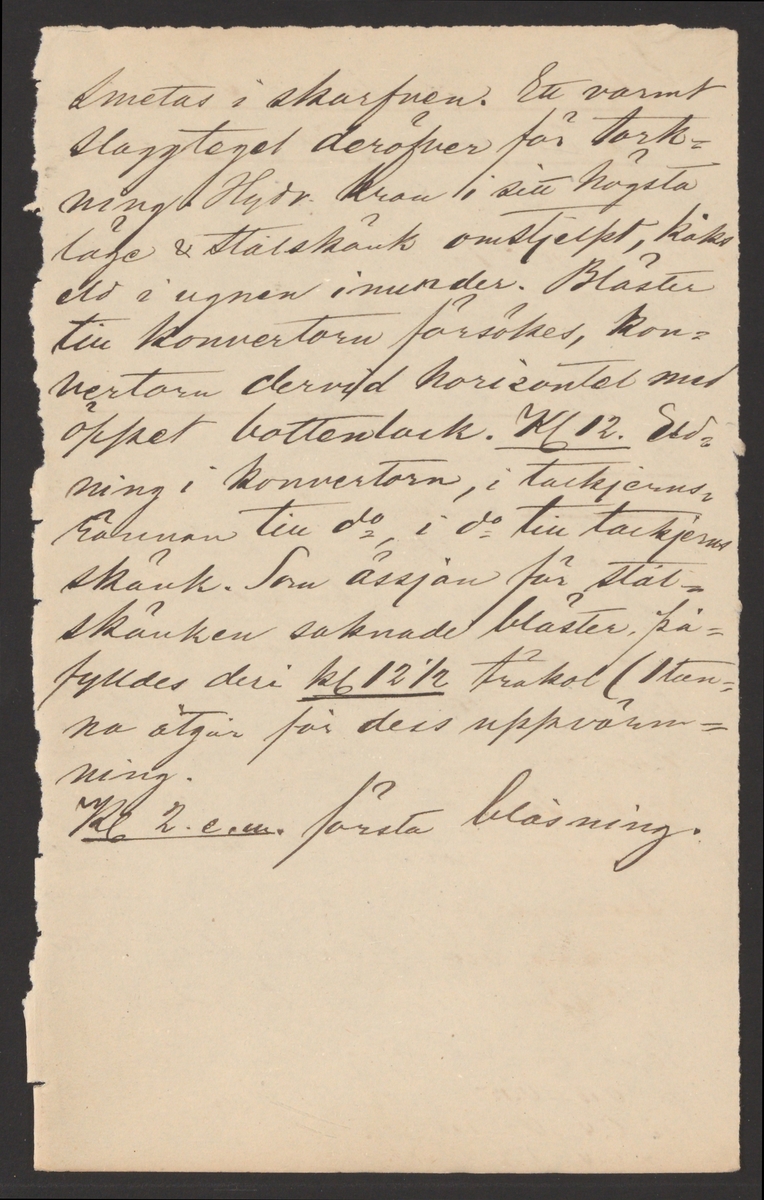 smetas i skarfven. Ett varmt
slaggtegel deröfver för tork-
ning. Hydr. kran i sitt högsta
läge & stålskänk omstjelpt, koks
eld i ugnen inunder. Bläster
till konvertorn försökes, kon-
vertorn dervid horizontel med
öppet bottenlock. Kl 12. Eld-
ning i konvertorn, i tackjerns-
rännan till do, i do till tackjerns
skänk. Som ässjan för stål-
skänken saknade bläster, på-
fylldes deri kl 12 1/2 träkol (1 tun-
na åtgår för dess uppvärm-
ning.
Kl 2. e.m. första blåsning.